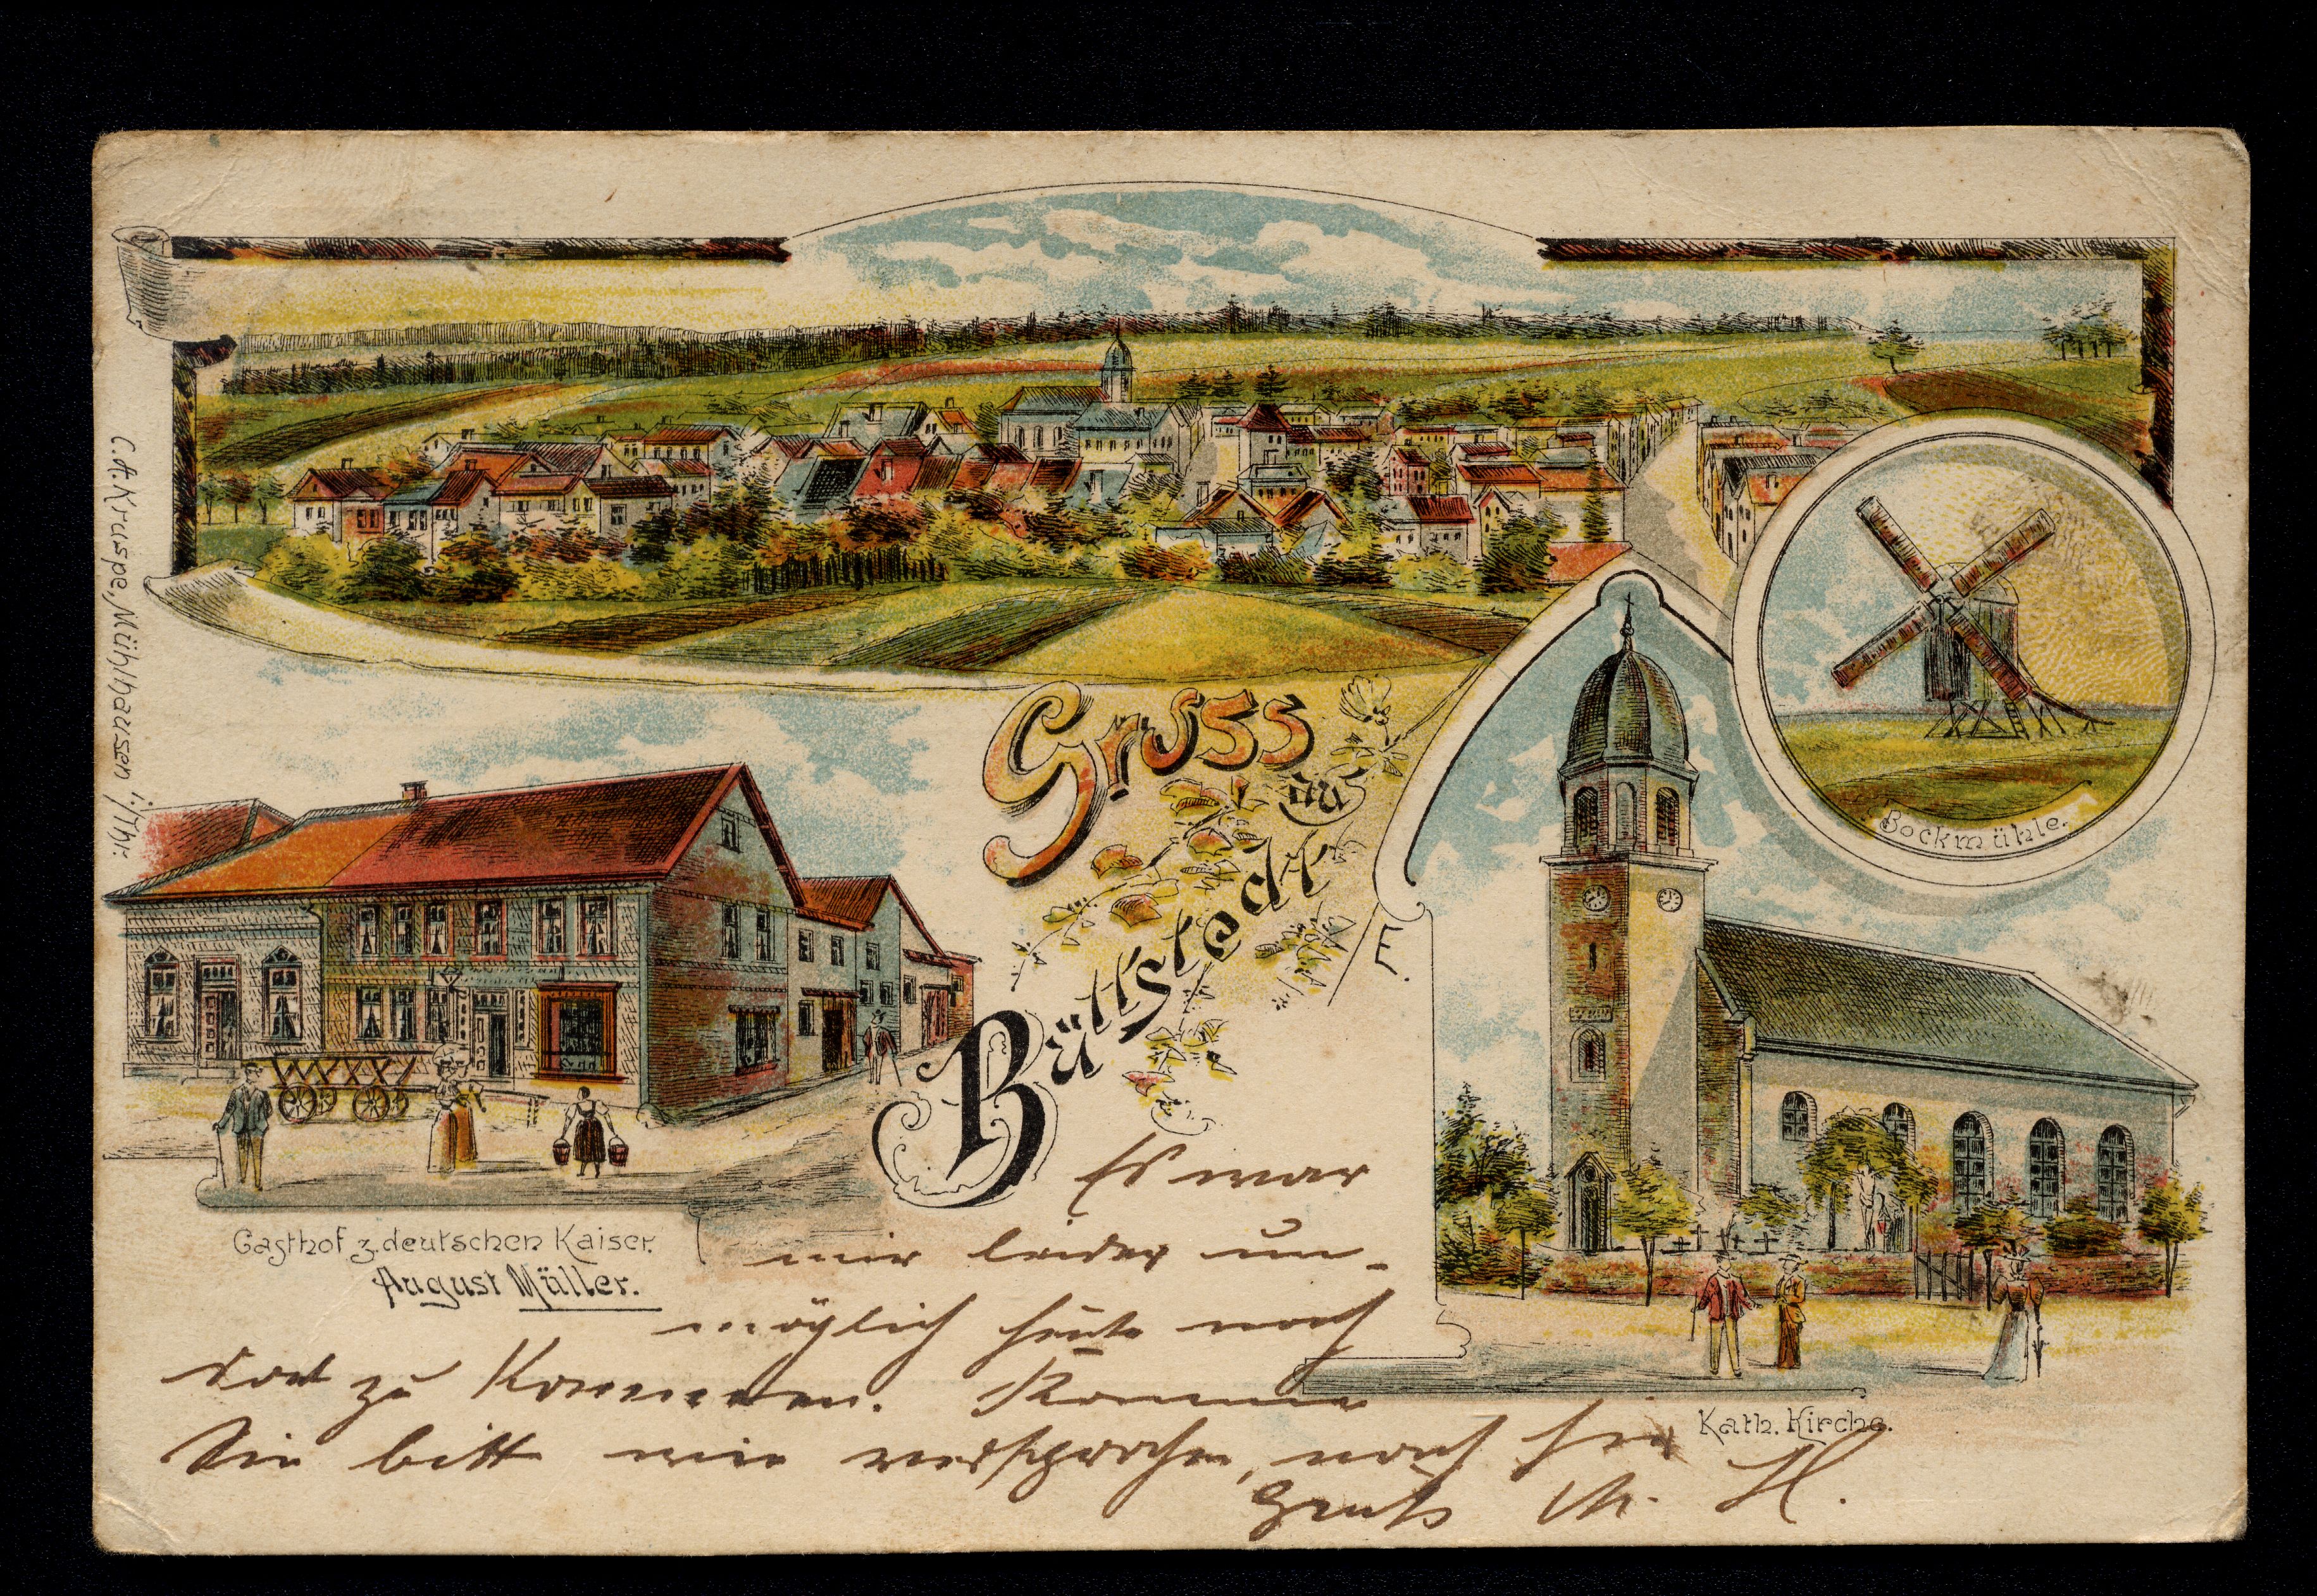 C. A. Kruspe, Mühlhausen i./Thr.
Gruss
aus
Büttstedt
E.
Bockmühle.
Gasthof z. deutschen Kaiser.
August Müller.
Kath. Kirche.
Es war
mir leider un-
möglich heute noch
dort zu kommen. Komme
Sie bitte wie versprochen, nach
Gruß M. H.